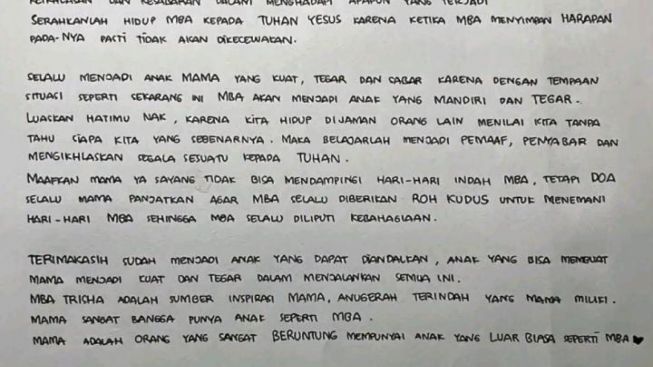 KEIKHLASAN DAN KESABARAN DALAM MENGHADAPI APAPUN YANG TERJADI
SERAHKANLAH HIDUP MBA KEPADA TUHAN YESUS KARENA KETIKA MBA MENYIMPAN HARAPAN
PADA-NYA PASTI TIDAK AKAN DIKECEWAKAN.
SELALU MENJADI ANAK MAMA YANG KUAT, TEGAR DAN SABAR KARENA DENGAN TEMPAAN
SITUASI SEPERTI SEKARANG INI MBA AKAN MENJADI ANAK YANG MANDIRI DAN TEGAR.
LUASKAN HATIMU NAK, KARENA KITA HIDUP DIJAMAN ORANG LAIN MENILAI KITA TANPA
TAHU SIAPA KITA YANG SEBENARNYA. MAKA BELAJARLAH MENJADI PEMAAF, PENYABAR DAN
MENGIKHLASKAN SEGALA SESUATU KEPADA TUHAN.
MAAFKAN MAMA YA SAYANG TIDAK BISA MENDAMPINGI HARI-HARI INDAH MBA, TETAPI DOA
SELALU MAMA PANJATKAN AGAR MBA SELALU DIBERIKAN ROH KUDUS UNTUK MENEMANI
HARI-HARI MBA SEHINGGA MBA SELALU DILIPUTI KEBAHAGIAAN.
TERIMAKASIH SUDAH MENJADI ANAK YANG DAPAT DIANDALKAN, ANAK YANG BISA MEMBUAT
MAMA MENJADI KUAT DAN TEGAR DALAM MENJALANKAN SEMUA INI.
MBA TRISHA ADALAH SUMBER INSPIRASI MAMA, ANUGERAH TERINDAH YANG MAMA MILIKI.
MAMA SANGAT BANGGA PUNYA ANAK SEPERTI MBA.
MAMA ADALAH ORANG YANG SANGAT BERUNTUNG MEMPUNYAI ANAK YANG LUAR BIASA SEPERTI MBA ♥